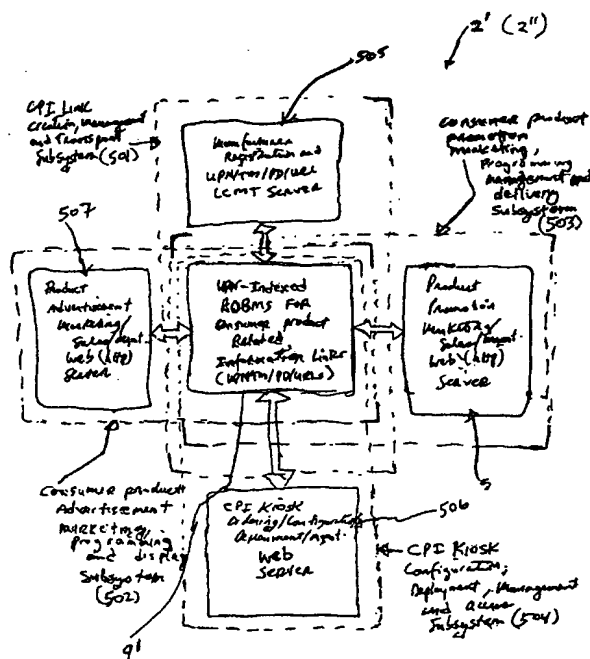 2' (2")
505
CPI Link
Creation, Management
and Transport
Subsystem (501)
Manufacturer
Registration and
UPN/TM/PD/URL
LCMT SERVER
Consumer product
promotion
marketing,
programming
management and
delivery
Subsystem
(503)
507
Product
Advertisement
Marketing/
Sales/mgmt.
Web (http)
Server
UPN-Indexed
RDBMS FOR
Consumer product
Related
Information Links
(UPN/TM/PD/URLs)
Product
Promotion
Marketing/
Sales/mgmt
Web (http)
Server
5
Consumer product
Advertisement
marketing,
programming
and display
Subsystem
(502)
CPI Kiosk
Ordering/Configuration
Deployment/mgmt.
Web
Server
506
CPI Kiosk
Configuration,
Deployment, Management
and Access
Subsystem (504)
9'